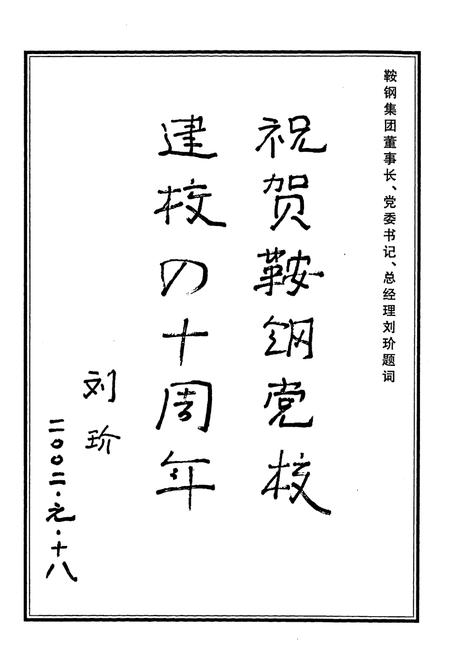 鞍钢集团董事长、党委书记、总经理刘玠题词
祝贺鞍钢党校
建校四十周年
刘玠
二〇〇二·元·十八